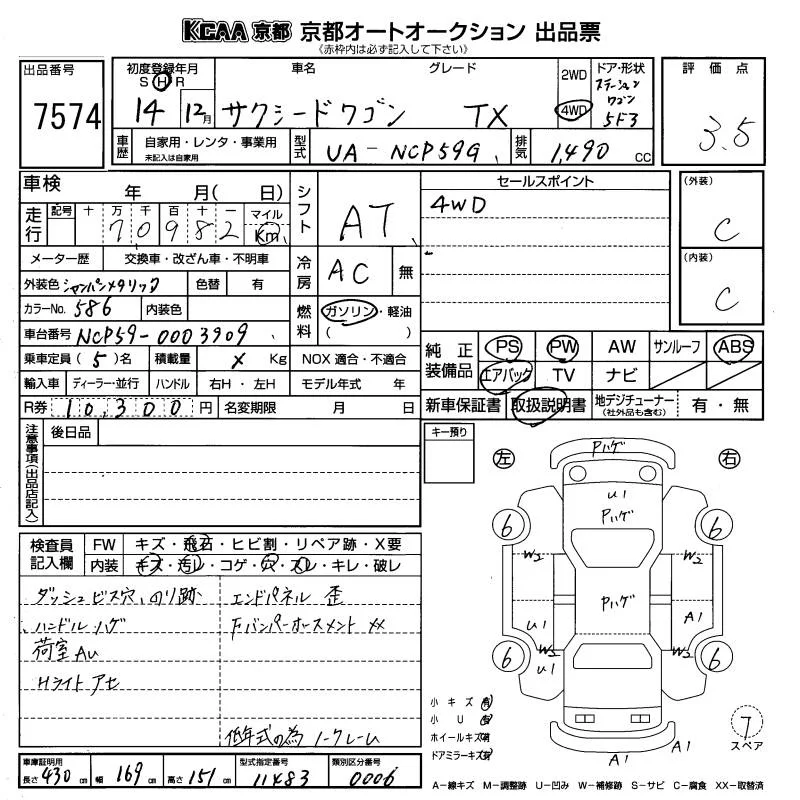 KCAA 京都 京都オートオークション 出品票
《赤枠内は必ず記入して下さい》
出品番号
7574
初度登録年月
S H R
14
12月
車名
サクシードワゴン
グレード
TX
2WD
4WD
ドア・形状
ステーション
ワゴン
5F3
評価点
3.5
車歴
自家用・レンタ・事業用
未記入は自家用
型式
UA-NCP59G
排気
1,490 CC
車検 年 月( 日)
走行
記号 十 万 千 百 十 一 マイル
70982 Km
メーター歴 交換車・改ざん車・不明車
外装色 シャンパンメタリック 色替 有
カラーNo. 586 内装色
車台番号 NCP59-0003909
乗車定員 (5)名 積載量 X Kg
輸入車 ディーラー・並行 ハンドル 右H・左H
R券 10,300円 名変期限 月 日
シフト
AT
冷房
AC 無
燃料
ガソリン・軽油
( )
NOX 適合・不適合
モデル年式 年
セールスポイント
4WD
(外装)
C
(内装)
C
純正装備品
PS PW AW サンルーフ ABS
エアバック TV ナビ
新車保証書 取扱説明書 地デジチューナー
(社外品も含む) 有・無
注意事項(出品店記入)
後日品
キー預り
左
右
Pハゲ
U1
Pハゲ
6
6
W2
W2
Pハゲ
U1
A1
W2
U1
W2
6
6
A1
A1
7
スペア
小キズ 有
小U 有
ホイールキズ 有
ドアミラーキズ 有
検査員記入欄
FW キズ・飛石・ヒビ割・リペア跡・X要
内装 キズ・汚レ・コゲ・穴・スレ・キレ・破レ
ダッシュビス穴、のり跡
ハンドルハゲ
荷室AU
Hライトアセ
エンドパネル 歪
Fバンパーホースメント XX
低年式の為 ノークレーム
車庫証明用
長さ 430 cm 幅 169 cm 高さ 151 cm
型式指定番号 11483
類別区分番号 0006
A-線キズ M-調整跡 U-凹み W-補修跡 S-サビ C-腐食 XX-取替済